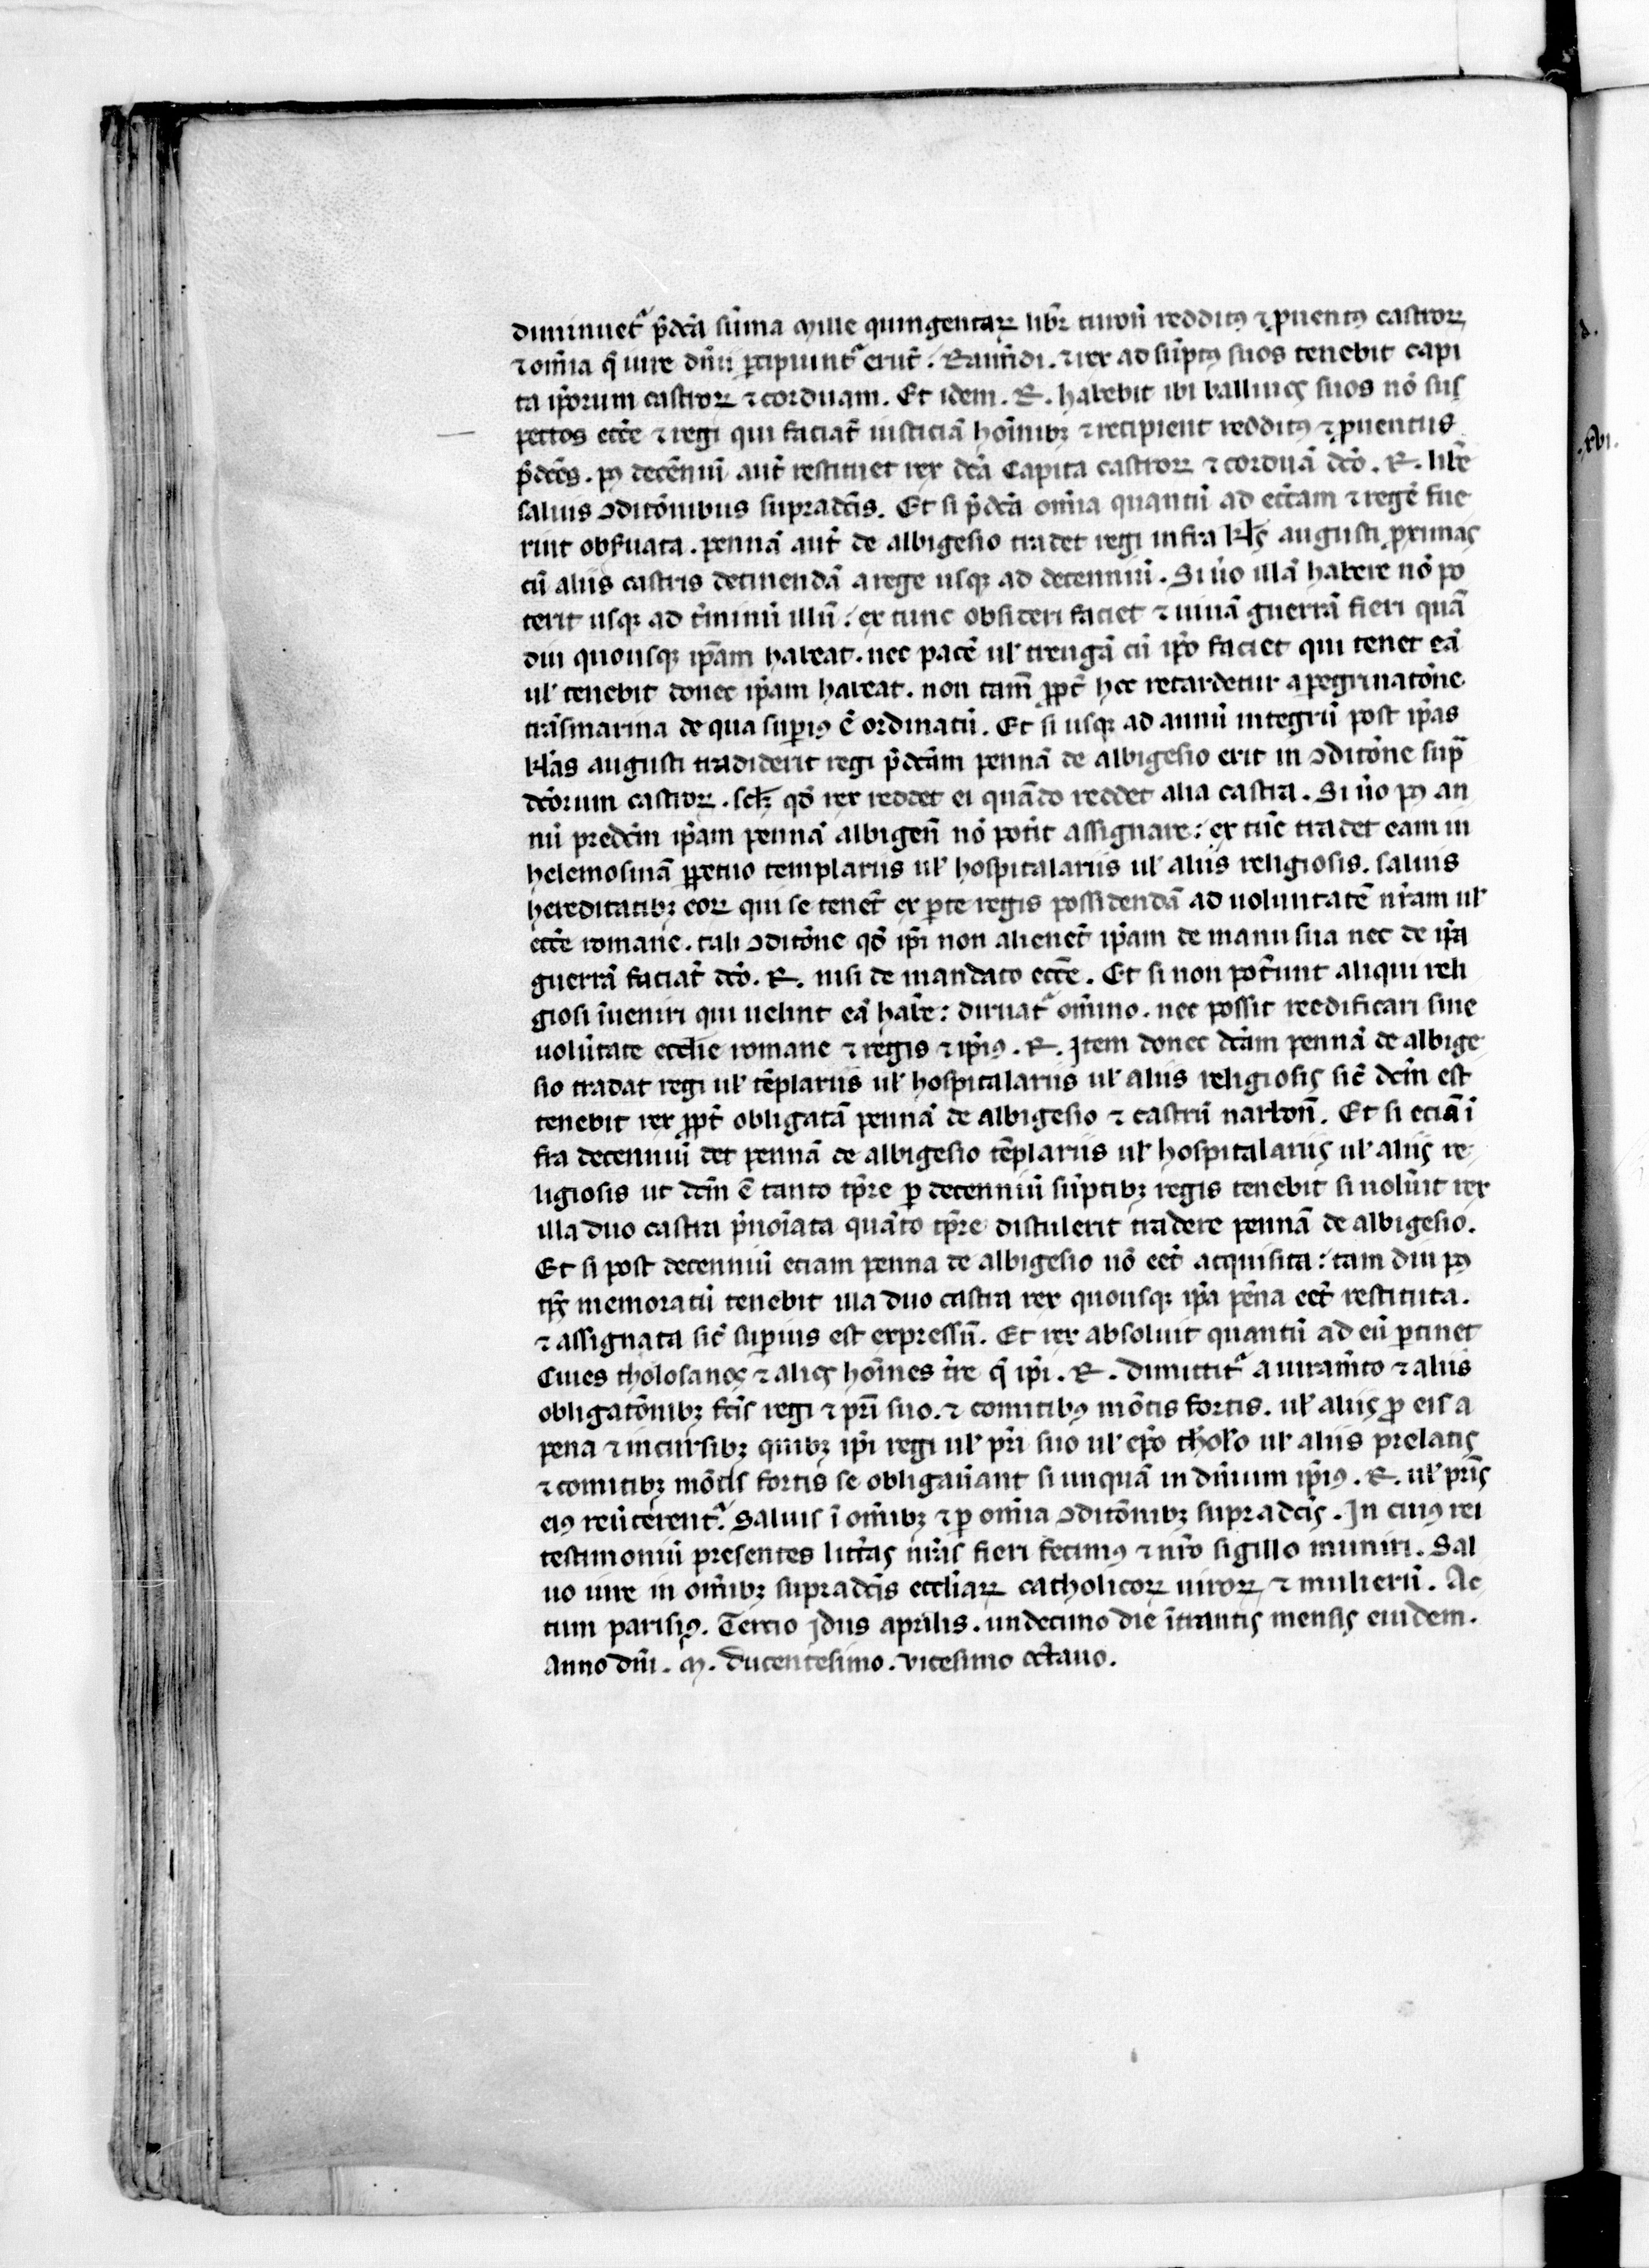 diminuet᷑ p̃dc̃a sũma Mille quingentaꝝ libr̃ turoñ redditꝰ ⁊ ꝓuentꝰ castroꝝ
⁊ om̃ia q̃ iure dñii ꝑcipiunt᷑ erut̃. Raim̃di. ⁊ rex ad sũptꝰ suos tenebit capi
ta ip̃orum castroꝝ ⁊ corduam. Et idem. R. habebit ibi balliuos suos nõ sus
pectos ecc̃e ⁊ regi qui faciãt iusticiã hom̃inibꝫ ⁊ recipient redditꝰ ⁊ ꝓuentus
p̃dc̃os. pꝰ decẽniũ aut̃ restituet rex dc̃a Capita castroꝝ ⁊ corduã dc̃o. R. libr̃e
saluis ↄditõnibus supradc̃is. Et si p̃dc̃a om̃ia quantũ ad ecc̃am ⁊ regẽ fue
rint obſuata. pennã aut̃ de albigesio tradet regi infra kl̃as augusti ꝓximas
cũ aliis castris detinendã a rege usqꝫ ad decenniũ. Si ũo illã habere nõ po
terit usqꝫ ad t̃minũ illũ: ex tunc obsideri faciet ⁊ uiuã guerrã fieri quã
diu quousqꝫ ip̃am habeat. nec pacẽ ul̃ treugã cũ ip̃o faciet qui tenet eã
ul̃ tenebit donec ip̃am habeat. non tam̃ ꝓpt̃ hec retardetur a ꝑegrinatõne
trãsmarina de qua suꝑiꝰ ẽ ordinatũ. Et si usqꝫ ad annũ integrũ post ip̃as
kl̃as augusti tradiderit regi p̃dc̃am pennã de albigesio erit in ↄditõne sup̃
dc̃orum castroꝝ. scilꝫ qđ rex reddet ei quãdo reddet alia castra. Si ũo pꝰ an
nũ predc̃m ip̃am pennã albigeñ nõ pot̃it assignare: ex tũc tradet eam in
helemosinã ꝑpetuo templariis ul̃ hospitalariis ul̃ aliis religiosis. saluis
hereditatibꝫ eoꝝ qui se tenẽt ex ꝑte regis possidendã ad uoluntatẽ nr̃am ul̃
ecc̃e romane. tali ↄditõne qđ ip̃i non alienẽt ip̃am de manu sua nec de ip̃a
guerrã faciãt dc̃o. R. nisi de mandato ecc̃e. Et si non pot̃unt aliqui reli
giosi ĩueniri qui uelint eã habr̃e: diruat᷑ om̃ino. nec possit reedificari sine
uolũtate ecclie romane ⁊ regis ⁊ ip̃iꝰ. R. Item donec dc̃am pennã de albige
sio tradat regi ul̃ tẽplariis ul̃ hospitalariis ul̃ aliis religiosis sic̃ dc̃m est
tenebit rex ꝓpt̃ obligatã pennã de albigesio ⁊ castrũ narboñ. Et si eciã ĩ
fra decenniũ det pennã de albigesio tẽplariis ul̃ hospitalariis ul̃ aliis re
ligiosis ut dc̃m ẽ tanto tp̃re ꝑ decenniũ sũptibꝫ regis tenebit si uolũit rex
illa duo castra p̃noĩata quãto tp̃re distulerit tradere pennã de albigesio.
Et si post decenniũ etiam penna de albigesio nõ eet̃ acquisita: tam diu pꝰ
tp̃s memoratũ tenebit illa duo castra rex quousqꝫ ip̃a pẽna eet̃ restituta.
⁊ assignata sic̃ suꝑius est expressũ. Et rex absoluit quantũ ad eũ ꝑtinet
Ciues tholosanos ⁊ alios hom̃ines t̃re q̃ ip̃i. R. dimittit᷑ a iuram̃to ⁊ aliis
obligatõnibꝫ fc̃is regi ⁊ pr̃i suo. ⁊ comitibꝰ mõtis fortis. ul̃ aliis ꝓ eis a
pena ⁊ incursibꝫ quibꝫ ip̃i regi ul̃ pr̃i suo ul̃ ep̃o tholo̾ ul̃ aliis prelatis
⁊ comitibꝫ mõtis fortis se obligaũant si unquã in dñium ip̃iꝰ. R. ul̃ pr̃is
eiꝰ reũterent᷑. Saluis ĩ om̃ibꝫ ⁊ ꝑ om̃ia ↄditõnibꝫ supradc̃is. In cuiꝰ rei
testimoniũ presentes litt̃as nr̃as fieri fecimꝰ ⁊ nr̃o sigillo muniri. Sal
uo iure in om̃ibꝫ supradc̃is eccliaꝝ catholicoꝝ uiroꝝ ⁊ mulierũ. Ac
tum parisiꝰ. Tercio Idus aprilis. undecimo die ĩtrantis mensis eiusdem.
Anno dñi. M. ducentesimo. vicesimo octauo.